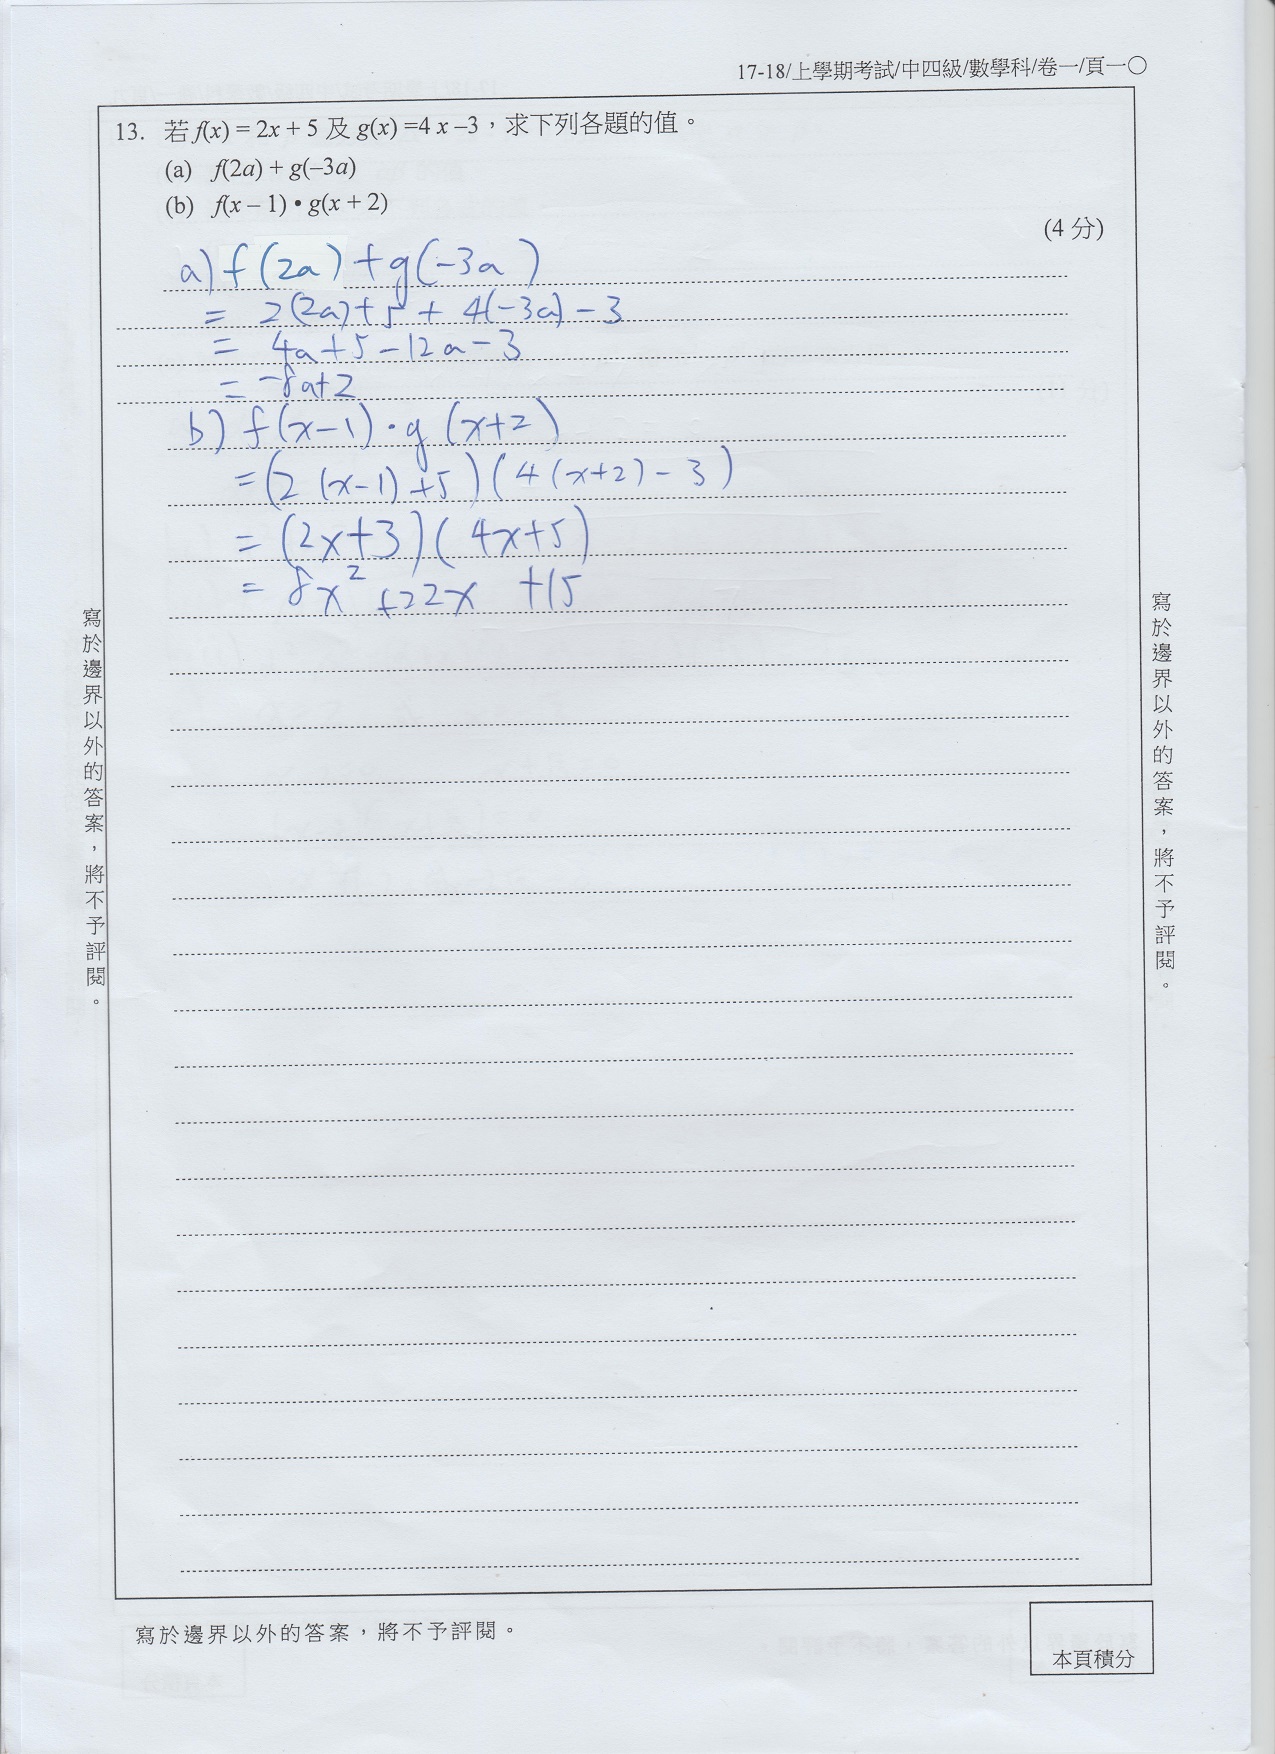 17-18/上學期考試/中四級/數學科/卷一/頁一〇
13. 若 f(x) = 2x + 5 及 g(x) =4 x –3，求下列各題的值。
(a) f(2a) + g(–3a)
(b) f(x – 1) • g(x + 2)
(4 分)
a) f(2a) + g(-3a)
= 2(2a)+5 + 4(-3a) - 3
= 4a+5-12a-3
= -8a+2
b) f(x-1)·g(x+2)
=(2(x-1)+5)(4(x+2)-3)
= (2x+3)(4x+5)
= 8x² +22x +15
寫於邊界以外的答案，將不予評閱。
寫於邊界以外的答案，將不予評閱。
寫於邊界以外的答案，將不予評閱。
本頁積分